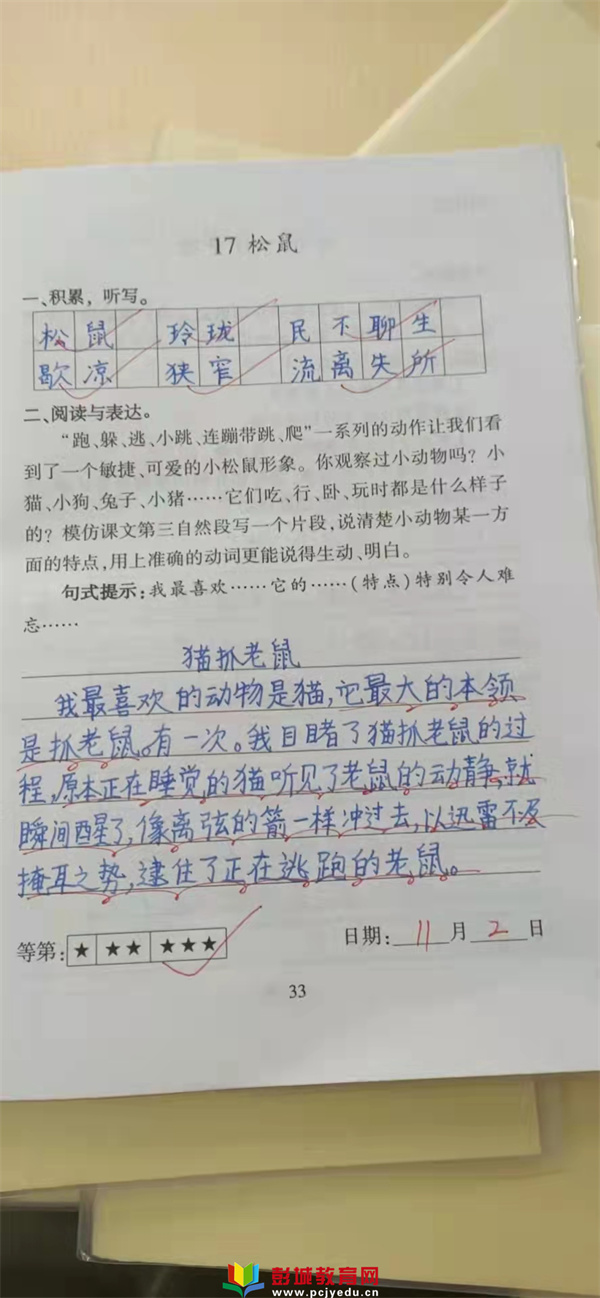 17 松鼠
一、积累，听写。
松鼠 玲珑 民不聊生
歇凉 狭窄 流离失所
二、阅读与表达。
“跑、躲、逃、小跳、连蹦带跳、爬”一系列的动作让我们看
到了一个敏捷、可爱的小松鼠形象。你观察过小动物吗？小
猫、小狗、兔子、小猪……它们吃、行、卧、玩时都是什么样子
的？模仿课文第三自然段写一个片段，说清楚小动物某一方
面的特点，用上准确的动词更能说得生动、明白。
句式提示：我最喜欢……它的……（特点）特别令人难
忘……
猫抓老鼠
我最喜欢的动物是猫，它最大的本领
是抓老鼠。有一次。我目睹了猫抓老鼠的过
程，原本正在睡觉的猫听见了老鼠的动静，就
瞬间醒了，像离弦的箭一样冲过去，以迅雷不及
掩耳之势，逮住了正在逃跑的老鼠。
等第：★ ★★ ★★★ 日期：11月2日
33
彭城教育网
www.pcjyedu.cn